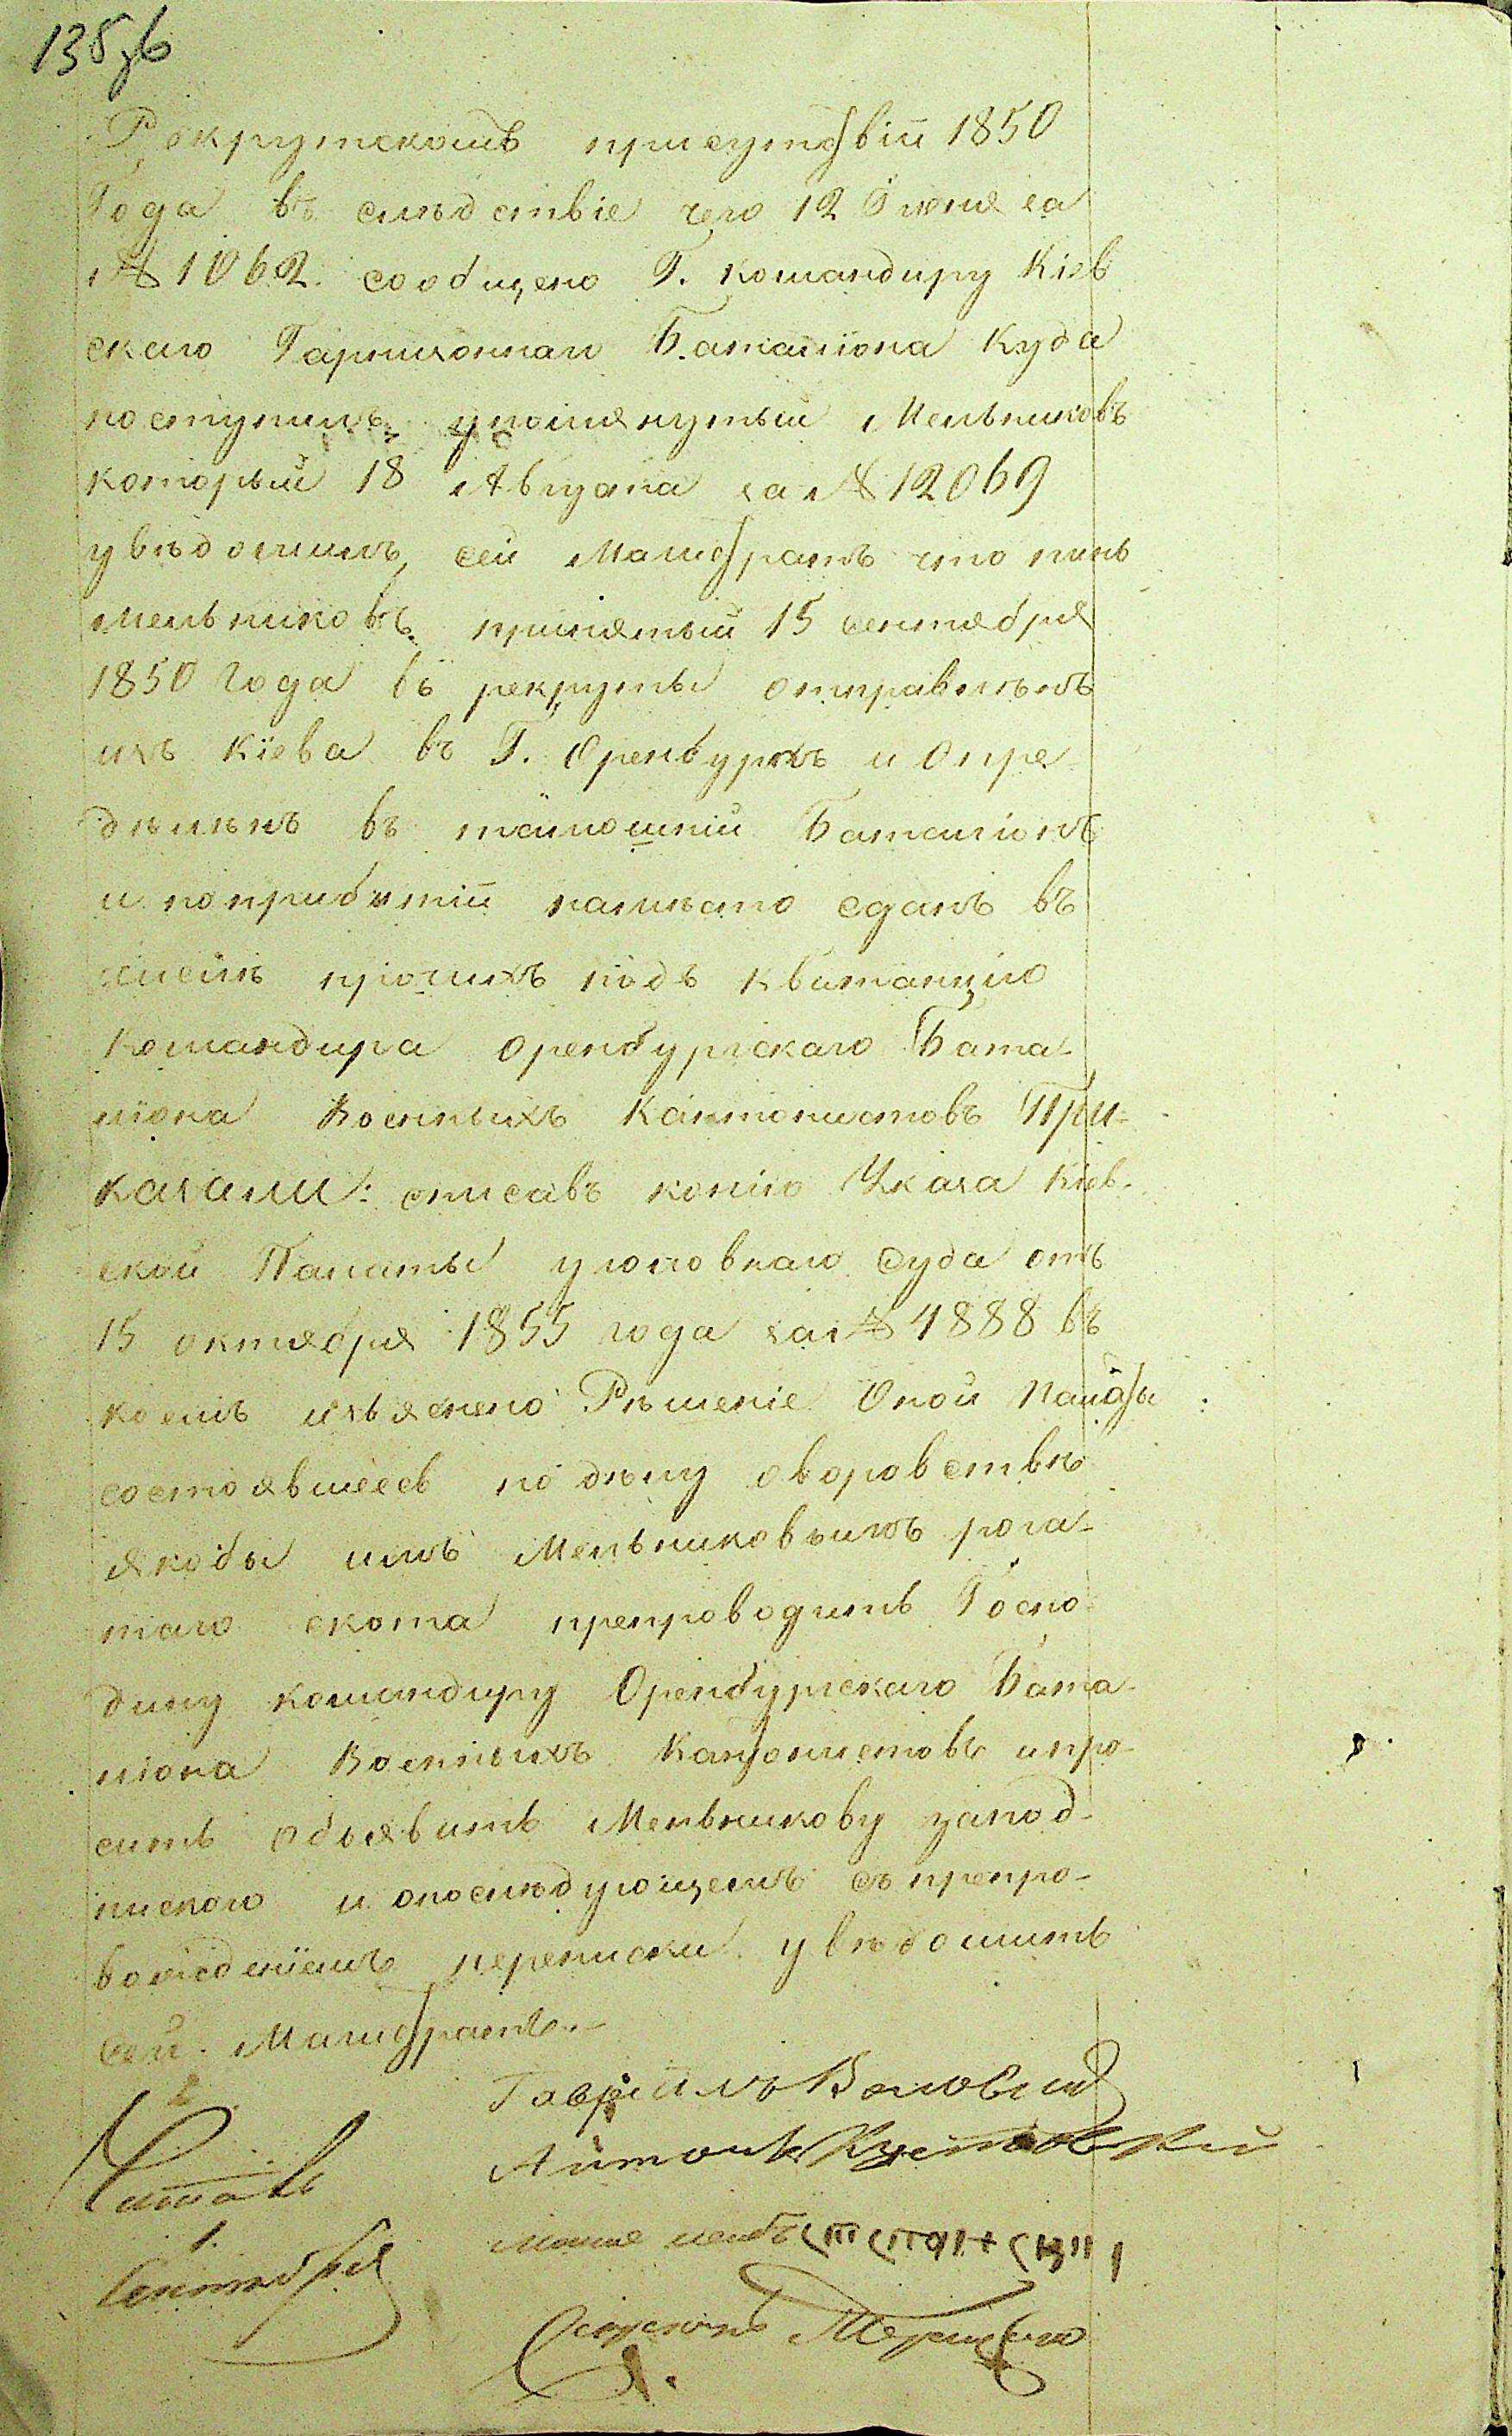 135 об
Рекрутскомъ присутствіи 1850
Года въ слѣдствіе чего 12 Іюня за
№ 1062. сообщено Г. Командиру Кіев
скаго Гарнизоннаго Баталіона куда
поступилъ упомянутый Мельниковъ
который 18 Августа за № 12069
увѣдомилъ сей Магистратъ что онъ
Мельниковъ принятый 15 сентября
1850 года въ рекруты отправлѣнъ
изъ Кіева въ Г. Оренбургъ и опре
дѣлѣнъ въ тамошній Баталіонъ
и поприбытіи налицѣто сданъ въ
числѣ прочихъ подъ квитанцію
Командира Оренбургскаго Бата-
ліона Военныхъ Кантонистовъ При-
казали: списавъ копію Указа Кіев-
ской Палаты уголовнаго Суда отъ
15 октября 1855 года за № 4888 въ
коемъ изъяснено Рѣшеніе Оной Палаты
состоявшееся по дѣлу оворовствѣ
якобы имъ Мельниковымъ рога-
таго скота препроводить Госпо-
дину командиру Оренбургскаго Бата-
ліона Военныхъ Кантонистовъ ипро-
сить объявить Мельникову запод-
пискою и опослѣдующемъ съ препро-
вождѣніемъ переписки увѣдомить
Сей Магистратъ.—
Гавріилъ
Антонъ
Читалъ
1.
Сентября